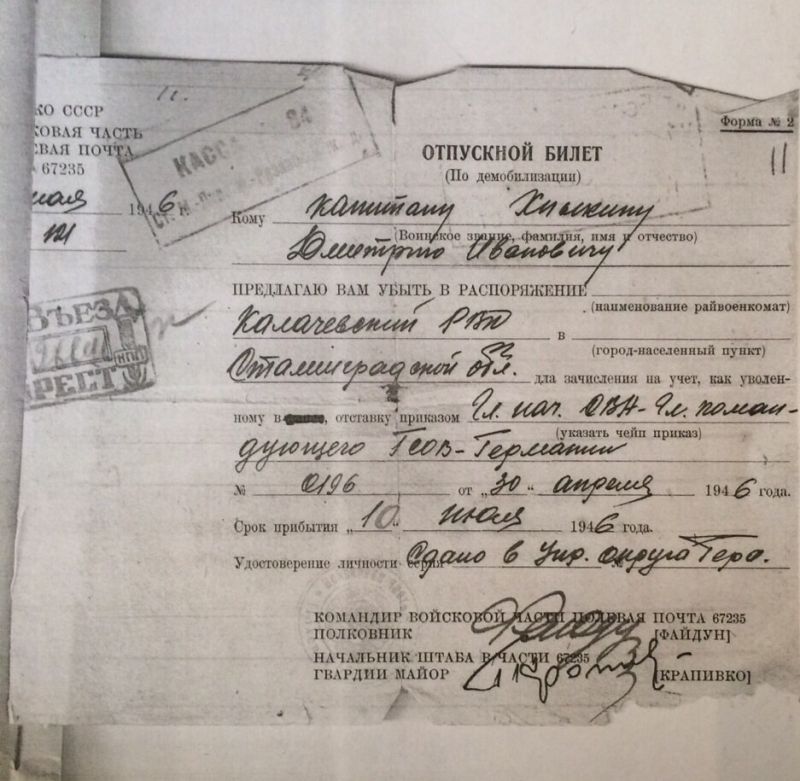 КО СССР
КОВАЯ ЧАСТЬ
ЕВАЯ ПОЧТА
67235
1946 г.
КАССА 84
Форма № 2
11
ОТПУСКНОЙ БИЛЕТ
(По демобилизации)
Кому капитану Хныкину
(Воинское звание, фамилия, имя и отчество)
Дмитрию Ивановичу
ПРЕДЛАГАЮ ВАМ УБЫТЬ В РАСПОРЯЖЕНИЕ
(наименование райвоенкомат)
Калачевский РВК в
(город-населенный пункт)
Сталинградской обл. дла зачисления на учет, как уволен-
ному в отставку приказом Гл. нач. СВА-Гл. коман-
(указать чейп приказ)
дующего ГСОВ-Германии
№ 0196 от „30“ апреля 1946 года.
Срок прибытия „10“ июля 1946 года.
Удостоверение личности серия Сдано в Упр. округа Гера.
ВЪЕЗД
КПП
БРЕСТ
КОМАНДИР ВОЙСКОВОЙ ЧАСТИ ПОЛЕВАЯ ПОЧТА 67235
ПОЛКОВНИК [ФАЙДУН]
НАЧАЛЬНИК ШТАБА В/ЧАСТИ 67235
ГВАРДИИ МАЙОР [КРАПИВКО]